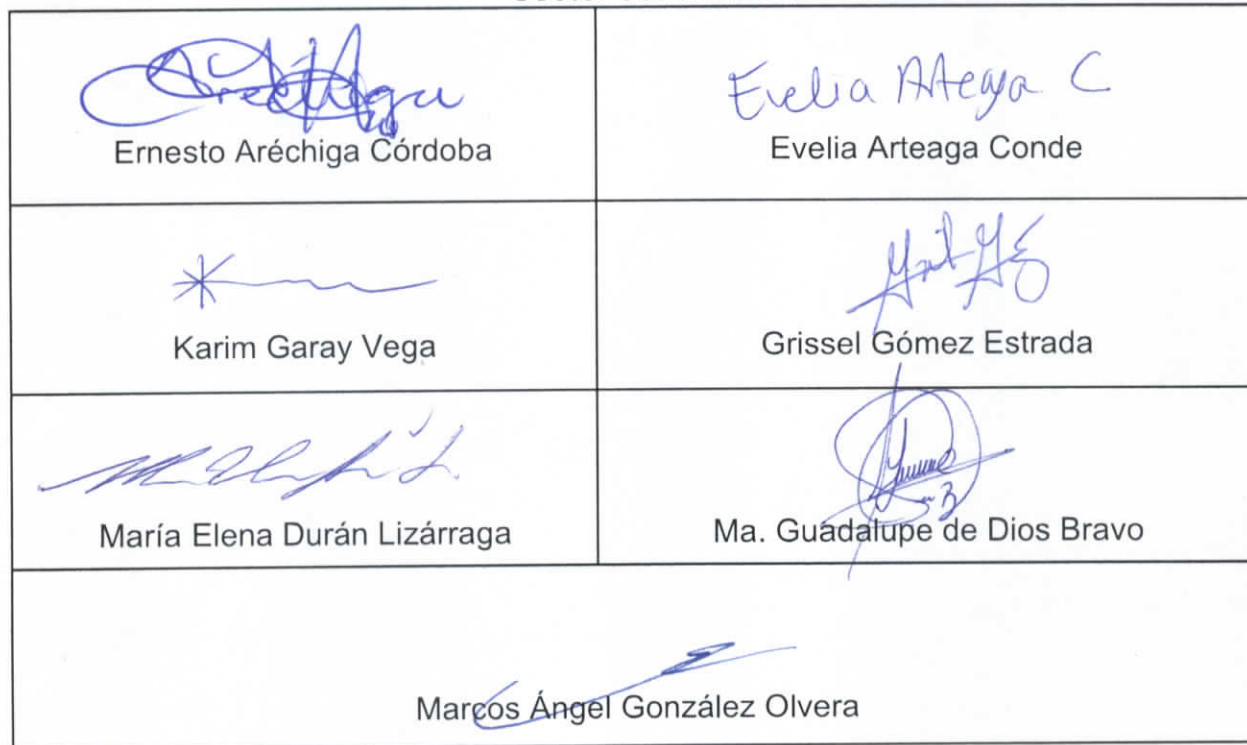 Aréchiga
Ernesto Aréchiga Córdoba
Evelia Arteaga C
Evelia Arteaga Conde
Karim Garay Vega
Grissel Gómez Estrada
María Elena Durán Lizárraga
Ma. Guadalupe de Dios Bravo
Marcos Ángel González Olvera